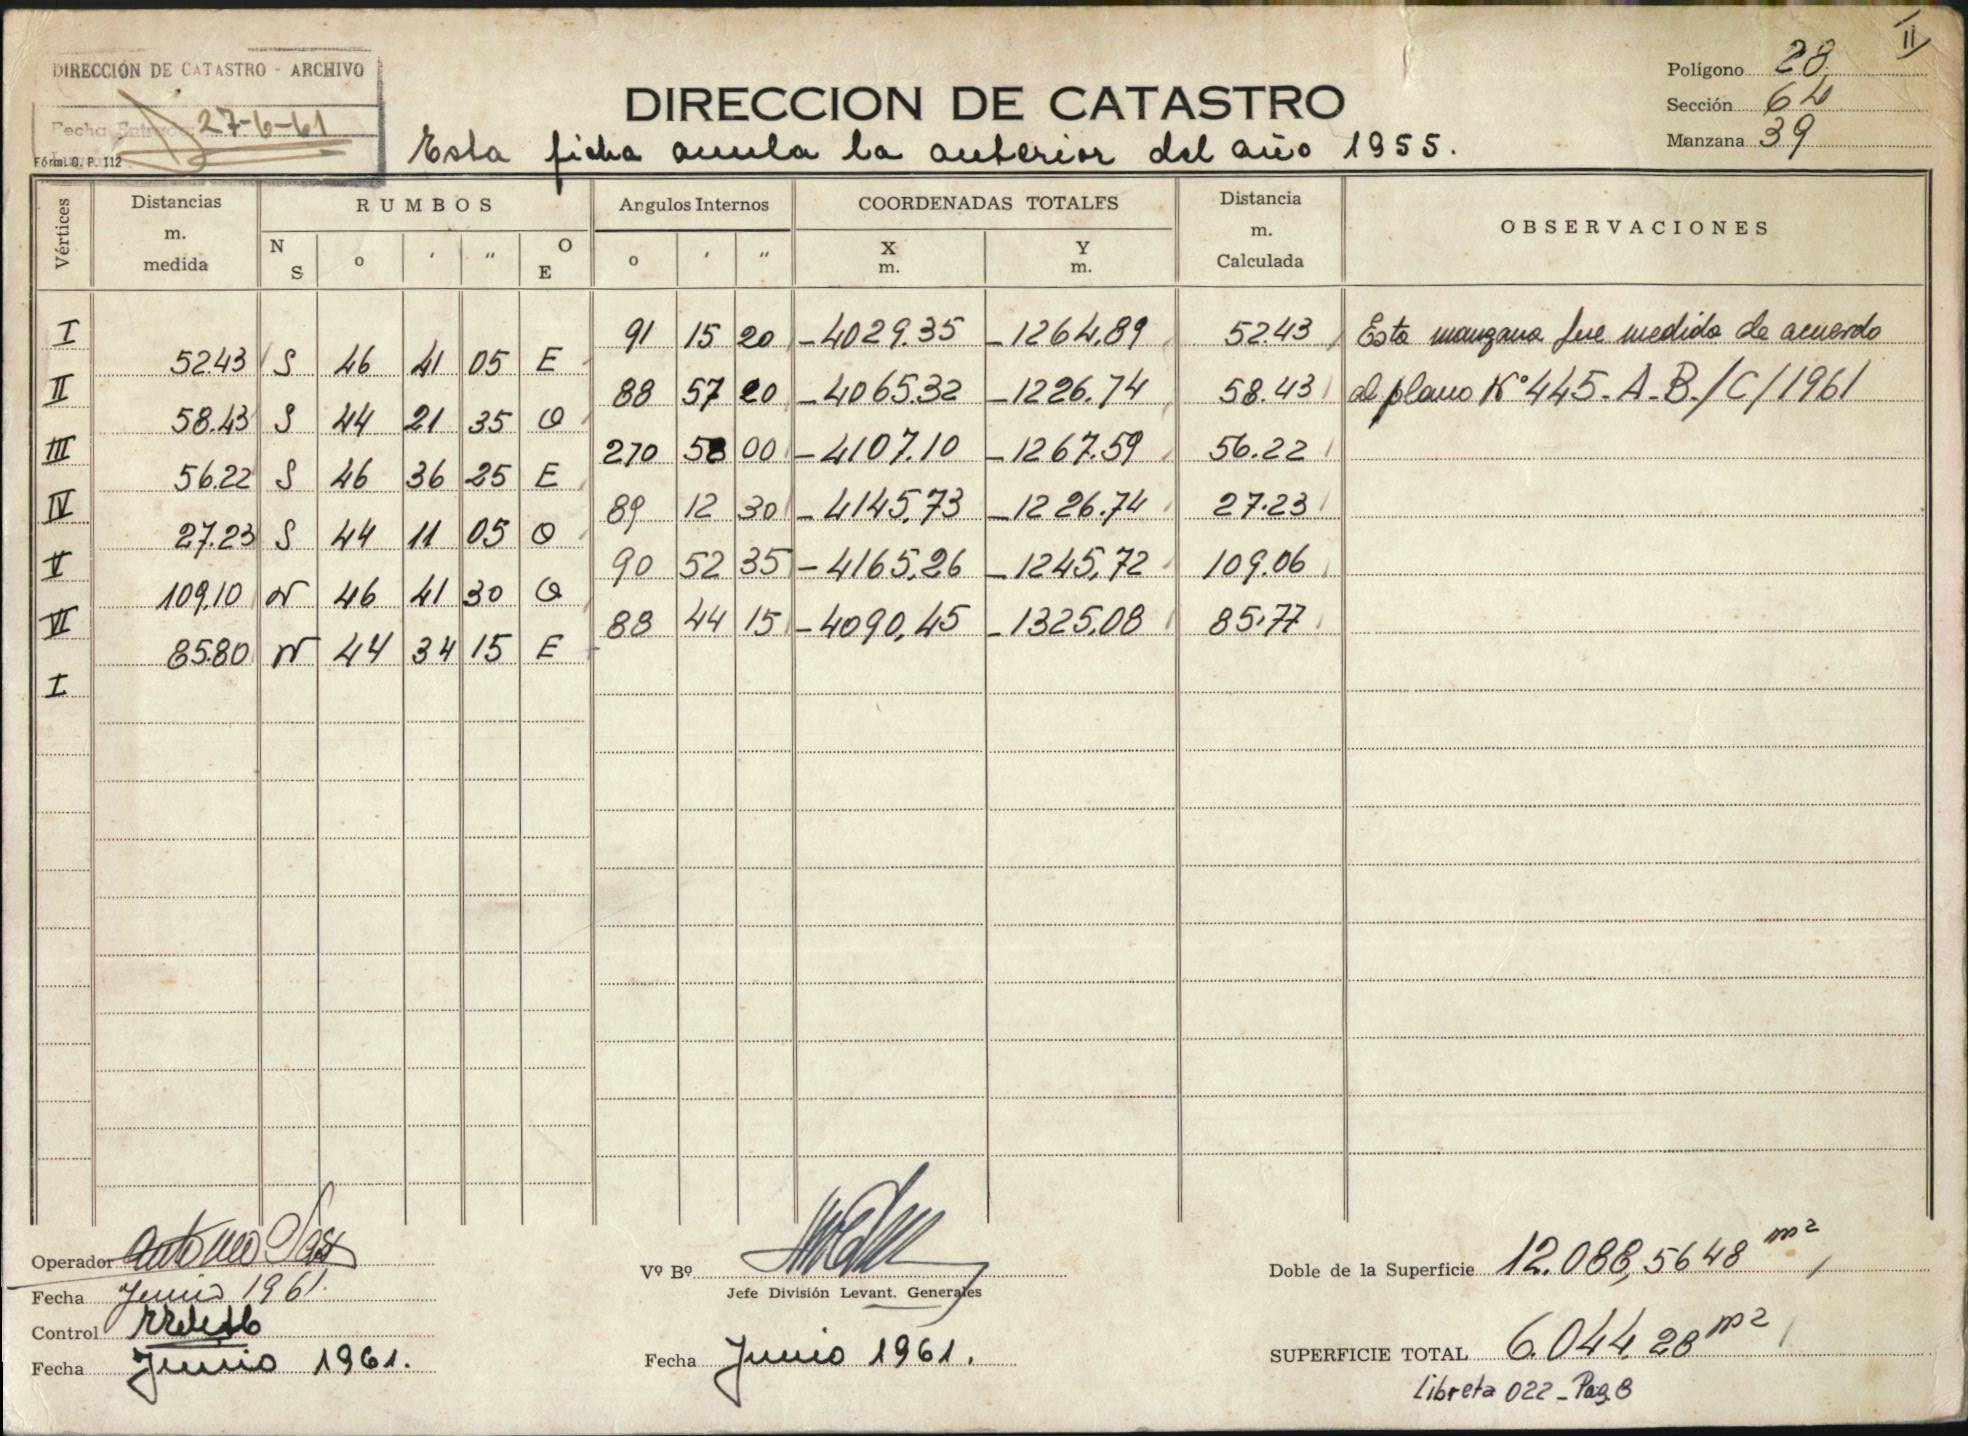 II
DIRECCIÓN DE CATASTRO - ARCHIVO
Fecha Entrada: 27-6-61
Fórm. O. P. 112
DIRECCION DE CATASTRO
Esta ficha anula la anterior del año 1955.
Polígono 28
Sección 64
Manzana 39
Vértices Distancias m. medida RUMBOS Angulos Internos COORDENADAS TOTALES Distancia m. Calculada OBSERVACIONES
N S o ' " O E o ' " X m. Y m.
I 91 15 20 -4029.35 -1264,89 52.43 Esta manzana fue medida de acuerdo
52.43 S 46 41 05 E
II 88 57 20 -4065.32 -1226.74 58.43 al plano Nº 445-A-B./C/1961
58.43 S 44 21 35 O
III 270 58 00 -4107.10 -1267.59 56.22
56.22 S 46 36 25 E
IV 89 12 30 -4145,73 -1226.74 27.23
27.23 S 44 11 05 O
V 90 52 35 -4165,26 -1245,72 109.06
109,10 N 46 41 30 O
VI 88 44 15 -4090,45 -1325,08 85,77
85.80 N 44 34 15 E
I
Operador Antonio
Fecha Junio 1961.
Control
Fecha Junio 1961.
Vº Bº
Jefe División Levant. Generales
Fecha Junio 1961.
Doble de la Superficie 12.088,5648 m2
SUPERFICIE TOTAL 6.044,28 m2
Libreta 022 - Pag. 8